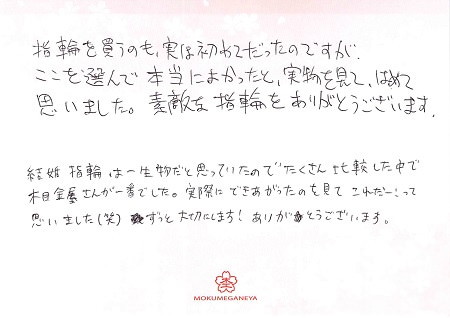 指輪を買うのも、実は初めてだったのですが、
ここを選んで本当によかったと、実物を見て、改めて
思いました。素敵な指輪をありがとうございます。
結婚指輪は一生物だと思っていたのでたくさん比較した中で
木目金屋さんが一番でした。実際にできあがったのを見て これだー!って
思いました(笑) ずっと大切にします! ありがとうございます。
MOKUMEGANEYA